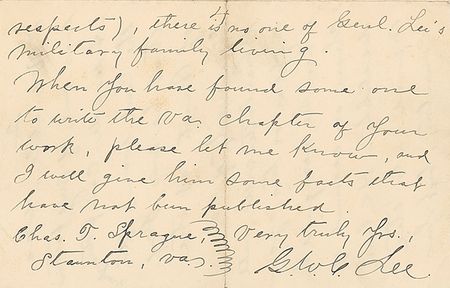 respects), there is no one of Genl. Lee's
military family living.
When you have found some one
to write the Va. chapter of your
work, please let me know, and
I will give him some facts that
have not been published.
Chas. T. Sprague, Very truly Yrs.,
Staunton, Va. G.W.C. Lee.